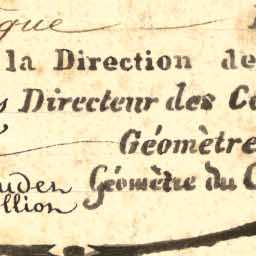 que
la Direction de
Directeur des Co
Géomètre
Géomètre du C
llion